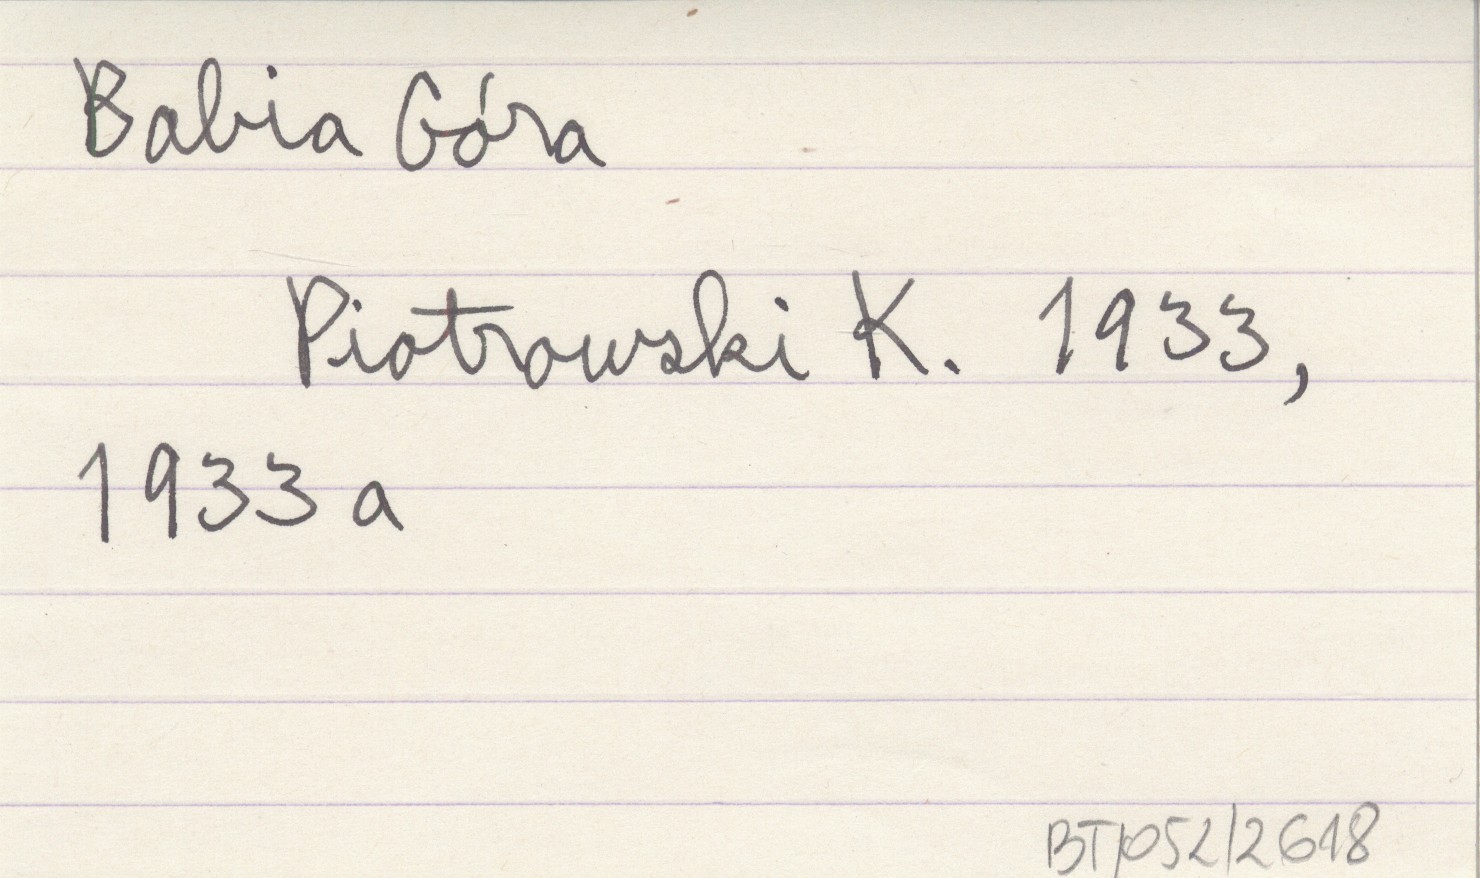 Babia Góra
Piotrowski K. 1933,
1933 a
BT/052/2618